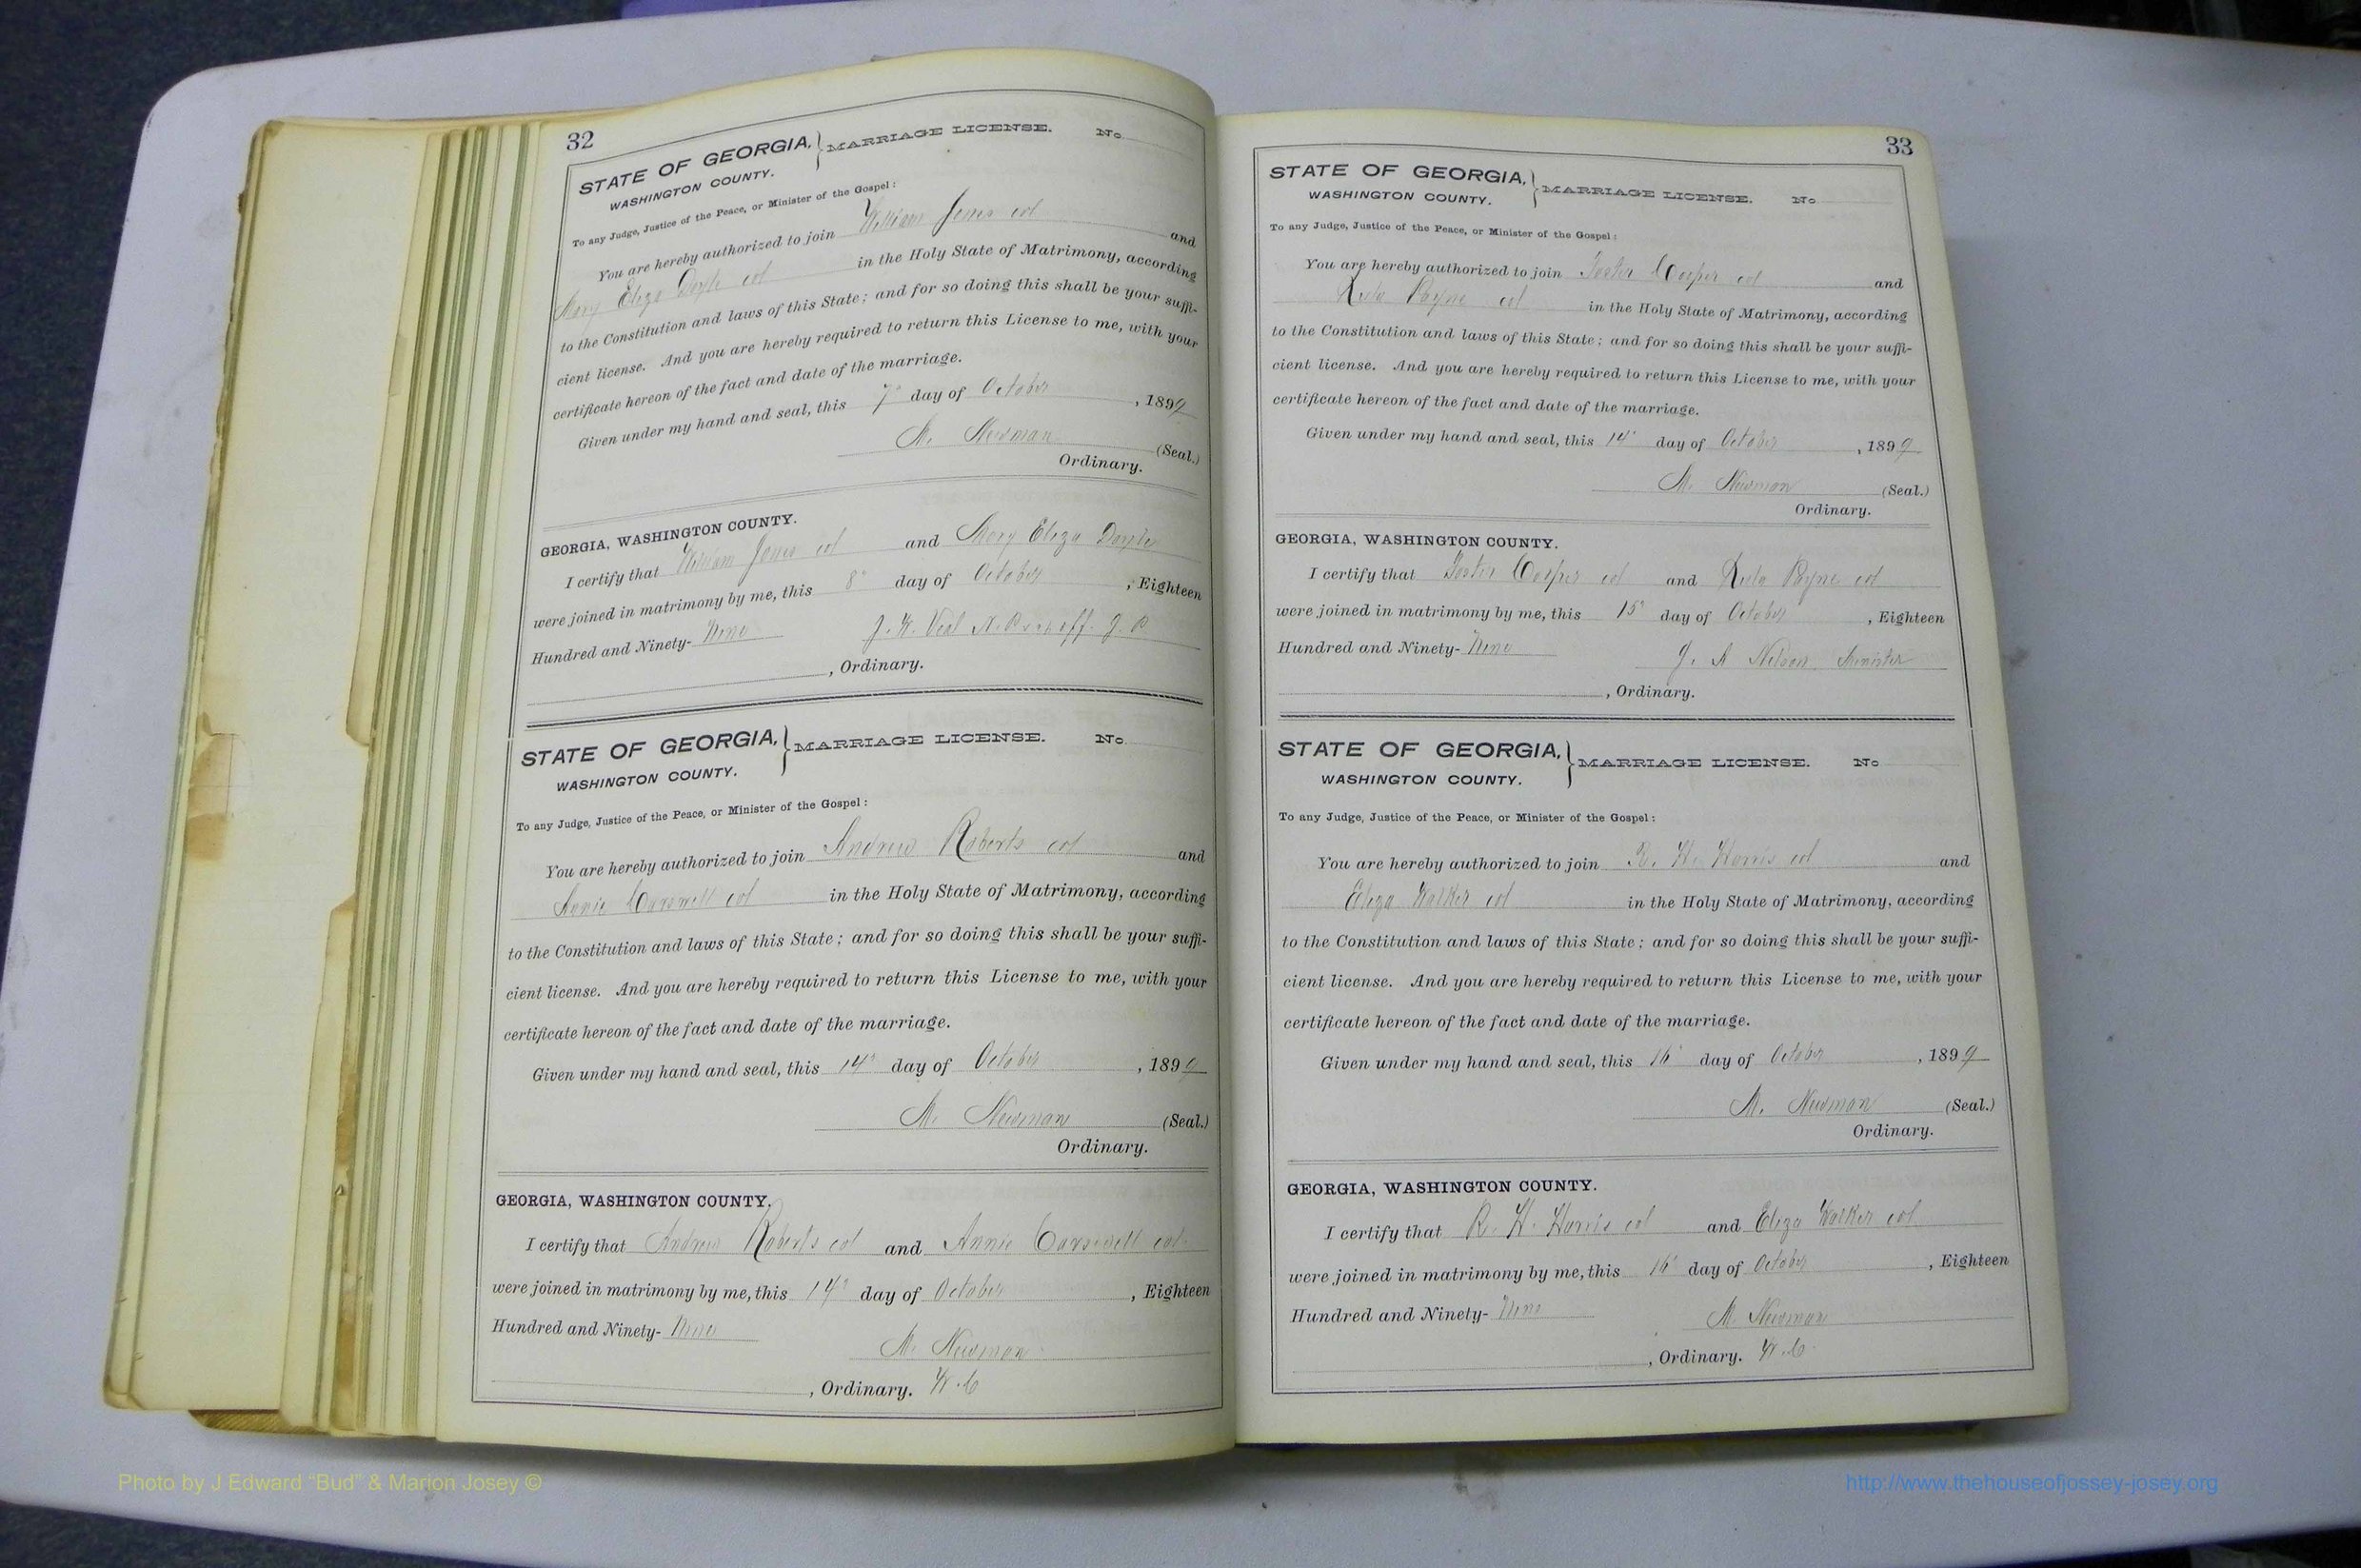 32
STATE OF GEORGIA, MARRIAGE LICENSE. No.
WASHINGTON COUNTY.
To any Judge, Justice of the Peace, or Minister of the Gospel:
You are hereby authorized to join William Jones col and
Mary Eliza Doyle col in the Holy State of Matrimony, according
to the Constitution and laws of this State; and for so doing this shall be your suffi-
cient license. And you are hereby required to return this License to me, with your
certificate hereon of the fact and date of the marriage.
Given under my hand and seal, this 7" day of October, 1899
M. Newman (Seal.)
Ordinary.
GEORGIA, WASHINGTON COUNTY.
I certify that William Jones col and Mary Eliza Doyle
were joined in matrimony by me, this 8" day of October, Eighteen
Hundred and Ninety-Nine J. W. Veal J. P.
, Ordinary.
STATE OF GEORGIA, MARRIAGE LICENSE. No.
WASHINGTON COUNTY.
To any Judge, Justice of the Peace, or Minister of the Gospel:
You are hereby authorized to join Andrew Roberts col and
Annie Carswell col in the Holy State of Matrimony, according
to the Constitution and laws of this State; and for so doing this shall be your suffi-
cient license. And you are hereby required to return this License to me, with your
certificate hereon of the fact and date of the marriage.
Given under my hand and seal, this 14" day of October, 1899
M. Newman (Seal.)
Ordinary.
GEORGIA, WASHINGTON COUNTY.
I certify that Andrew Roberts col and Annie Carswell col
were joined in matrimony by me, this 14" day of October, Eighteen
Hundred and Ninety-Nine M. Newman
, Ordinary. W. C
33
STATE OF GEORGIA, MARRIAGE LICENSE. No
WASHINGTON COUNTY.
To any Judge, Justice of the Peace, or Minister of the Gospel:
You are hereby authorized to join Foster Cooper col and
Payne col in the Holy State of Matrimony, according
to the Constitution and laws of this State; and for so doing this shall be your suffi-
cient license. And you are hereby required to return this License to me, with your
certificate hereon of the fact and date of the marriage.
Given under my hand and seal, this 14" day of October, 1899
M. Newman (Seal.)
Ordinary.
GEORGIA, WASHINGTON COUNTY.
I certify that Foster Cooper col and Payne col
were joined in matrimony by me, this 15" day of October, Eighteen
Hundred and Ninety-Nine J. A Nelson Minister
, Ordinary.
STATE OF GEORGIA, MARRIAGE LICENSE. No
WASHINGTON COUNTY.
To any Judge, Justice of the Peace, or Minister of the Gospel:
You are hereby authorized to join R. H. Harris col and
Eliza Walker col in the Holy State of Matrimony, according
to the Constitution and laws of this State; and for so doing this shall be your suffi-
cient license. And you are hereby required to return this License to me, with your
certificate hereon of the fact and date of the marriage.
Given under my hand and seal, this 16" day of October, 1899
M. Newman (Seal.)
Ordinary.
GEORGIA, WASHINGTON COUNTY.
I certify that R. H. Harris col and Eliza Walker col
were joined in matrimony by me, this 16" day of October, Eighteen
Hundred and Ninety-Nine M. Newman
, Ordinary. W. C
Photo by J Edward “Bud” & Marion Josey ©
http://www.thehouseofjossey-josey.org